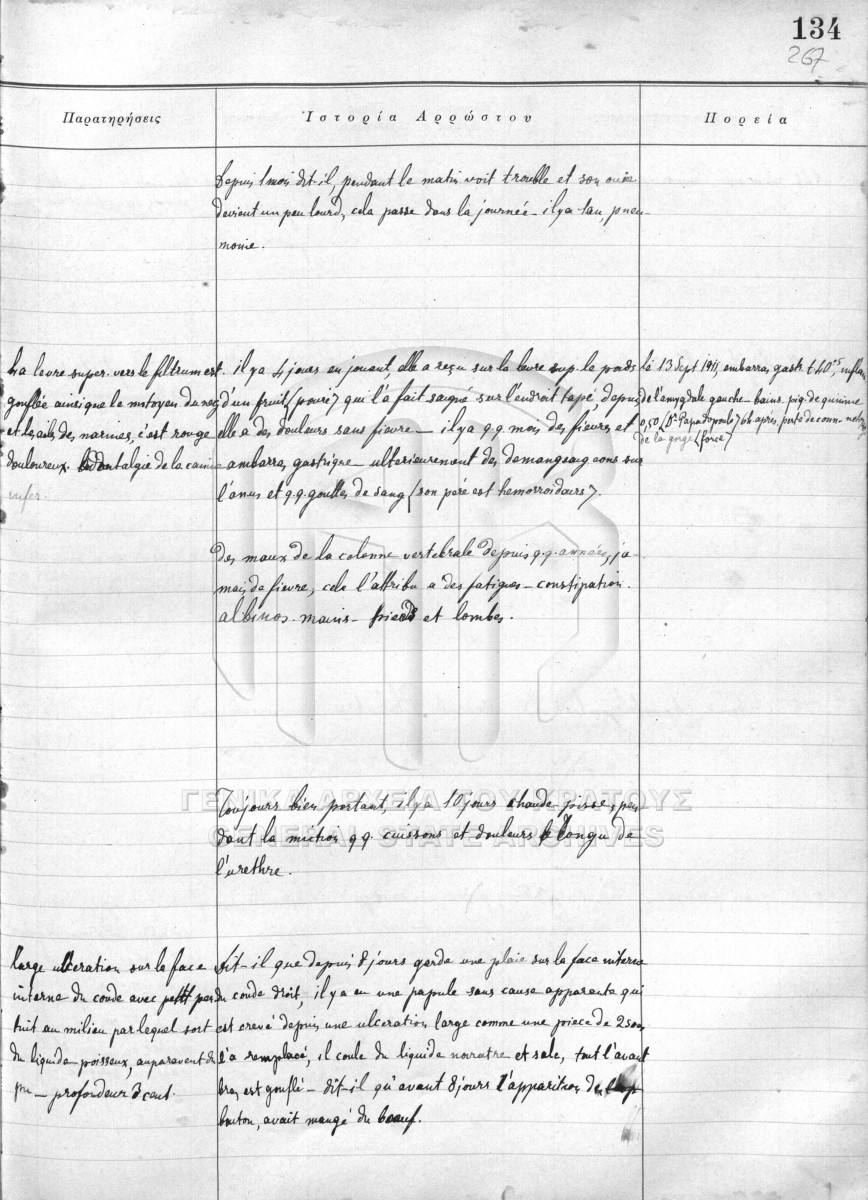 134
267
Παρατηρήσεις
Ἱστορία Ἀρρώστου
Πορεία
Depuis 1 mois dit-il, pendant le matin voit trouble et son ouie
devient un peu lourd, cela passe dans la journée – il y a 1 an, pneu-
monie.
La levre super. vers le filtrum est
gouflée ainsi que le mitoyen du nez
et les ailes des narines, c'est rouge
douloureux. odontalgie de la canine
infer.
il y a 4 jours en jouant, elle a reçu sur la levre sup. le poids
d'un fruit (poire) qui l'a fait saigné sur l'endroit tapé, depuis
elle a des douleurs sans fievre – il y a q.q. mois des fievres et
embarras gastrique – ulterieurement des demangeaisons sur
l'anus et q.q. gouttes de sang (son père est hemorroidaire).
le 13 Sept 1911, embarras gastr. t 40°5, inflam
de l'amygdale gauche – bains. piq. de quinine
0,50 (Dr Papadopoulo) 6h après, perte de conn.
de la gorge (force)
Des maux de la colonne vertebrale depuis q.q. années, ja-
mais de fievre, cela l'attribu a des fatigues – constipation.
albinos. mains – pieds et lombes.
Toujours bien portant, il y a 10 jours chaude-pisse, pen
dant la miction q.q. cuissons et douleurs le longu de
l'urethre.
large ulceration sur la face
interne du coude avec petit per
tuit au milieu par lequel sort
du liquide poisseux, auparavent du
pu – profondeur 3 cent.
Dit-il que depuis 8 jours garde une plaie sur la face interne
du coude droit, il y a eu une papule sans cause apparente qui
est crevé depuis une ulceration large comme une piece de 2 sous
l'a remplacé, il coule du liquide noiratre et sale, tout l'avant
bras est gouflé – dit-il qu'avant 8 jours l'apparition de
bouton, avait mangé du boeuf.
ΓΕΝΙΚΑ ΑΡΧΕΙΑ ΤΟΥ ΚΡΑΤΟΥΣ
GENERAL STATE ARCHIVES